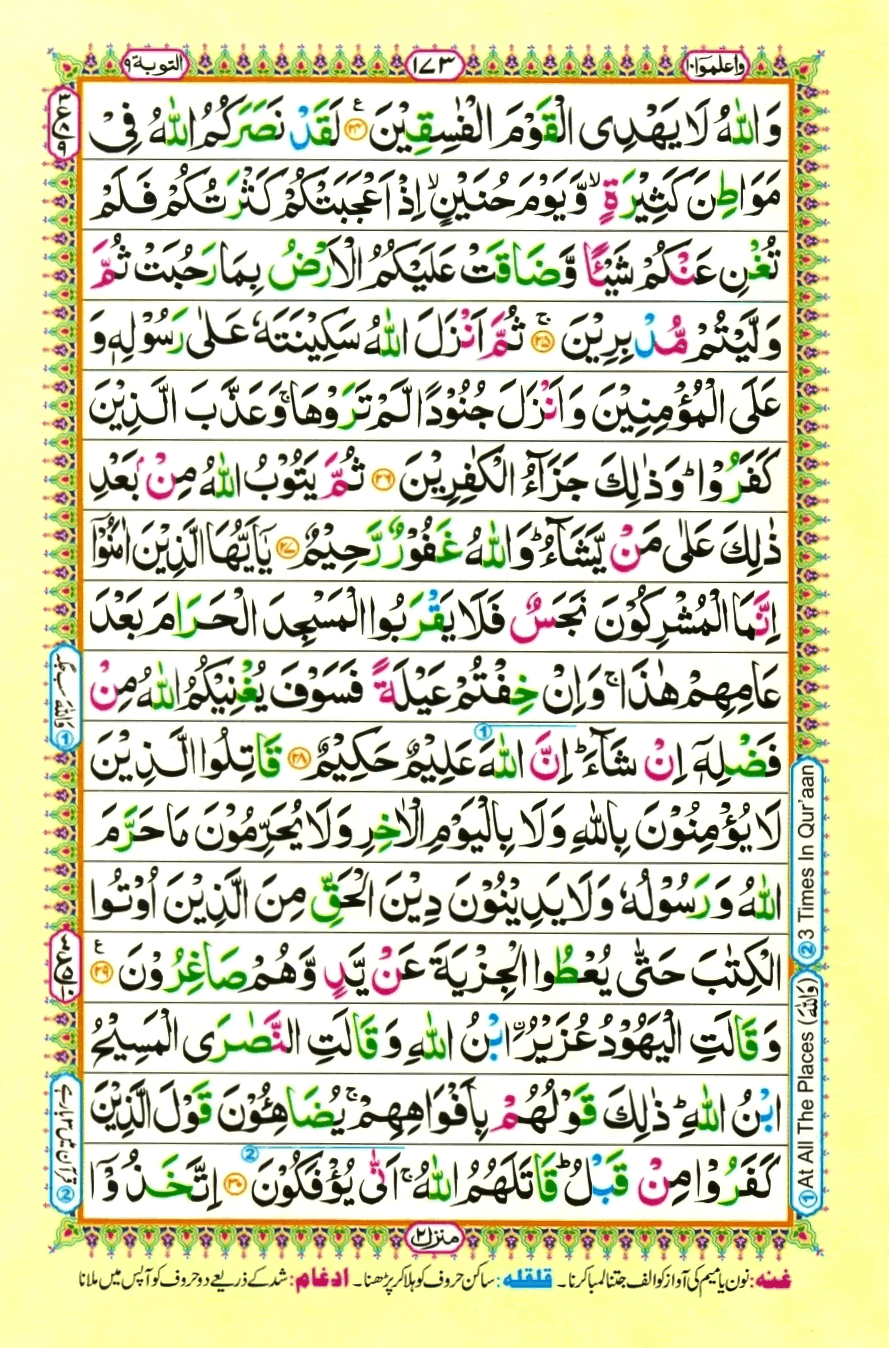 واعلموا ١٠
١٧٣
التوبة ٩
وَاللّٰهُ لَا يَهْدِى الْقَوْمَ الْفٰسِقِيْنَ ﴿۲۴﴾ لَقَدْ نَصَرَكُمُ اللّٰهُ فِىْ
مَوَاطِنَ كَثِيْرَةٍ ۙ وَّيَوْمَ حُنَيْنٍ ۙ اِذْ اَعْجَبَتْكُمْ كَثْرَتُكُمْ فَلَمْ
تُغْنِ عَنْكُمْ شَيْـًٔا وَّضَاقَتْ عَلَيْكُمُ الْاَرْضُ بِمَا رَحُبَتْ ثُمَّ
وَلَّيْتُمْ مُّدْبِرِيْنَ ۚ ﴿۲۵﴾ ثُمَّ اَنْزَلَ اللّٰهُ سَكِيْنَتَهٗ عَلٰى رَسُوْلِهٖ وَ
عَلَى الْمُؤْمِنِيْنَ وَاَنْزَلَ جُنُوْدًا لَّمْ تَرَوْهَا ۚ وَعَذَّبَ الَّذِيْنَ
كَفَرُوْا ؕ وَذٰلِكَ جَزَآءُ الْكٰفِرِيْنَ ﴿۲۶﴾ ثُمَّ يَتُوْبُ اللّٰهُ مِنْۢ بَعْدِ
ذٰلِكَ عَلٰى مَنْ يَّشَآءُ ؕ وَاللّٰهُ غَفُوْرٌ رَّحِيْمٌ ﴿۲۷﴾ يٰۤاَيُّهَا الَّذِيْنَ اٰمَنُوْۤا
اِنَّمَا الْمُشْرِكُوْنَ نَجَسٌ فَلَا يَقْرَبُوا الْمَسْجِدَ الْحَرَامَ بَعْدَ
عَامِهِمْ هٰذَا ۚ وَاِنْ خِفْتُمْ عَيْلَةً فَسَوْفَ يُغْنِيْكُمُ اللّٰهُ مِنْ
فَضْلِهٖۤ اِنْ شَآءَ ؕ اِنَّ اللّٰهَ عَلِيْمٌ حَكِيْمٌ ﴿۲۸﴾ قَاتِلُوا الَّذِيْنَ
لَا يُؤْمِنُوْنَ بِاللّٰهِ وَلَا بِالْيَوْمِ الْاٰخِرِ وَلَا يُحَرِّمُوْنَ مَا حَرَّمَ
اللّٰهُ وَرَسُوْلُهٗ وَلَا يَدِيْنُوْنَ دِيْنَ الْحَقِّ مِنَ الَّذِيْنَ اُوْتُوا
الْكِتٰبَ حَتّٰى يُعْطُوا الْجِزْيَةَ عَنْ يَّدٍ وَّهُمْ صَاغِرُوْنَ ﴿۲۹﴾
وَقَالَتِ الْيَهُوْدُ عُزَيْرُ ۨابْنُ اللّٰهِ وَقَالَتِ النَّصٰرَى الْمَسِيْحُ
ابْنُ اللّٰهِ ؕ ذٰلِكَ قَوْلُهُمْ بِاَفْوَاهِهِمْ ۚ يُضَاهِئُوْنَ قَوْلَ الَّذِيْنَ
كَفَرُوْا مِنْ قَبْلُ ؕ قَاتَلَهُمُ اللّٰهُ ۚ اَنّٰى يُؤْفَكُوْنَ ﴿۳۰﴾ اِتَّخَذُوْۤا
① وَاللّٰهُ سب جگہ
② قرآن میں ۳ بار ہے
② 3 Times In Qur'aan
① At All The Places (وَاللّٰهُ)
منزل ٢
غنه: نون یا میم کی آواز کو الف جتنا لمبا کرنا۔ قلقله: ساکن حروف کو ہلا کر پڑھنا۔ ادغام: شد کے ذریعے دو حروف کو آپس میں ملانا